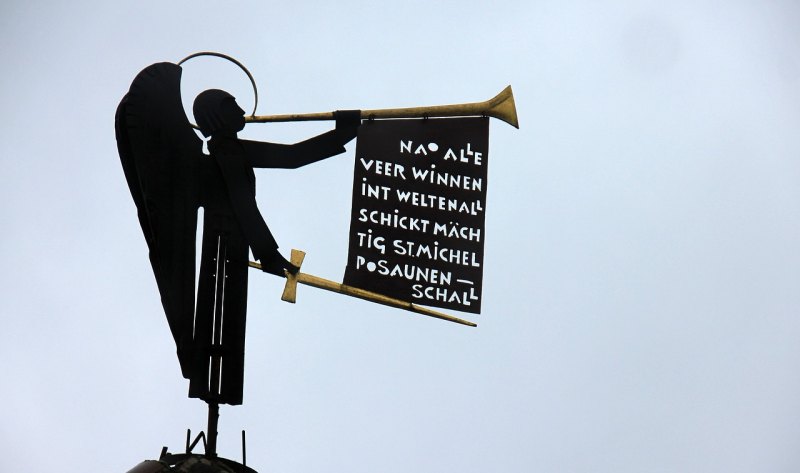 NAO ALLE
VEER WINNEN
INT WELTENALL
SCHICKT MÄCH
TIG ST.MICHEL
POSAUNEN—
SCHALL
W